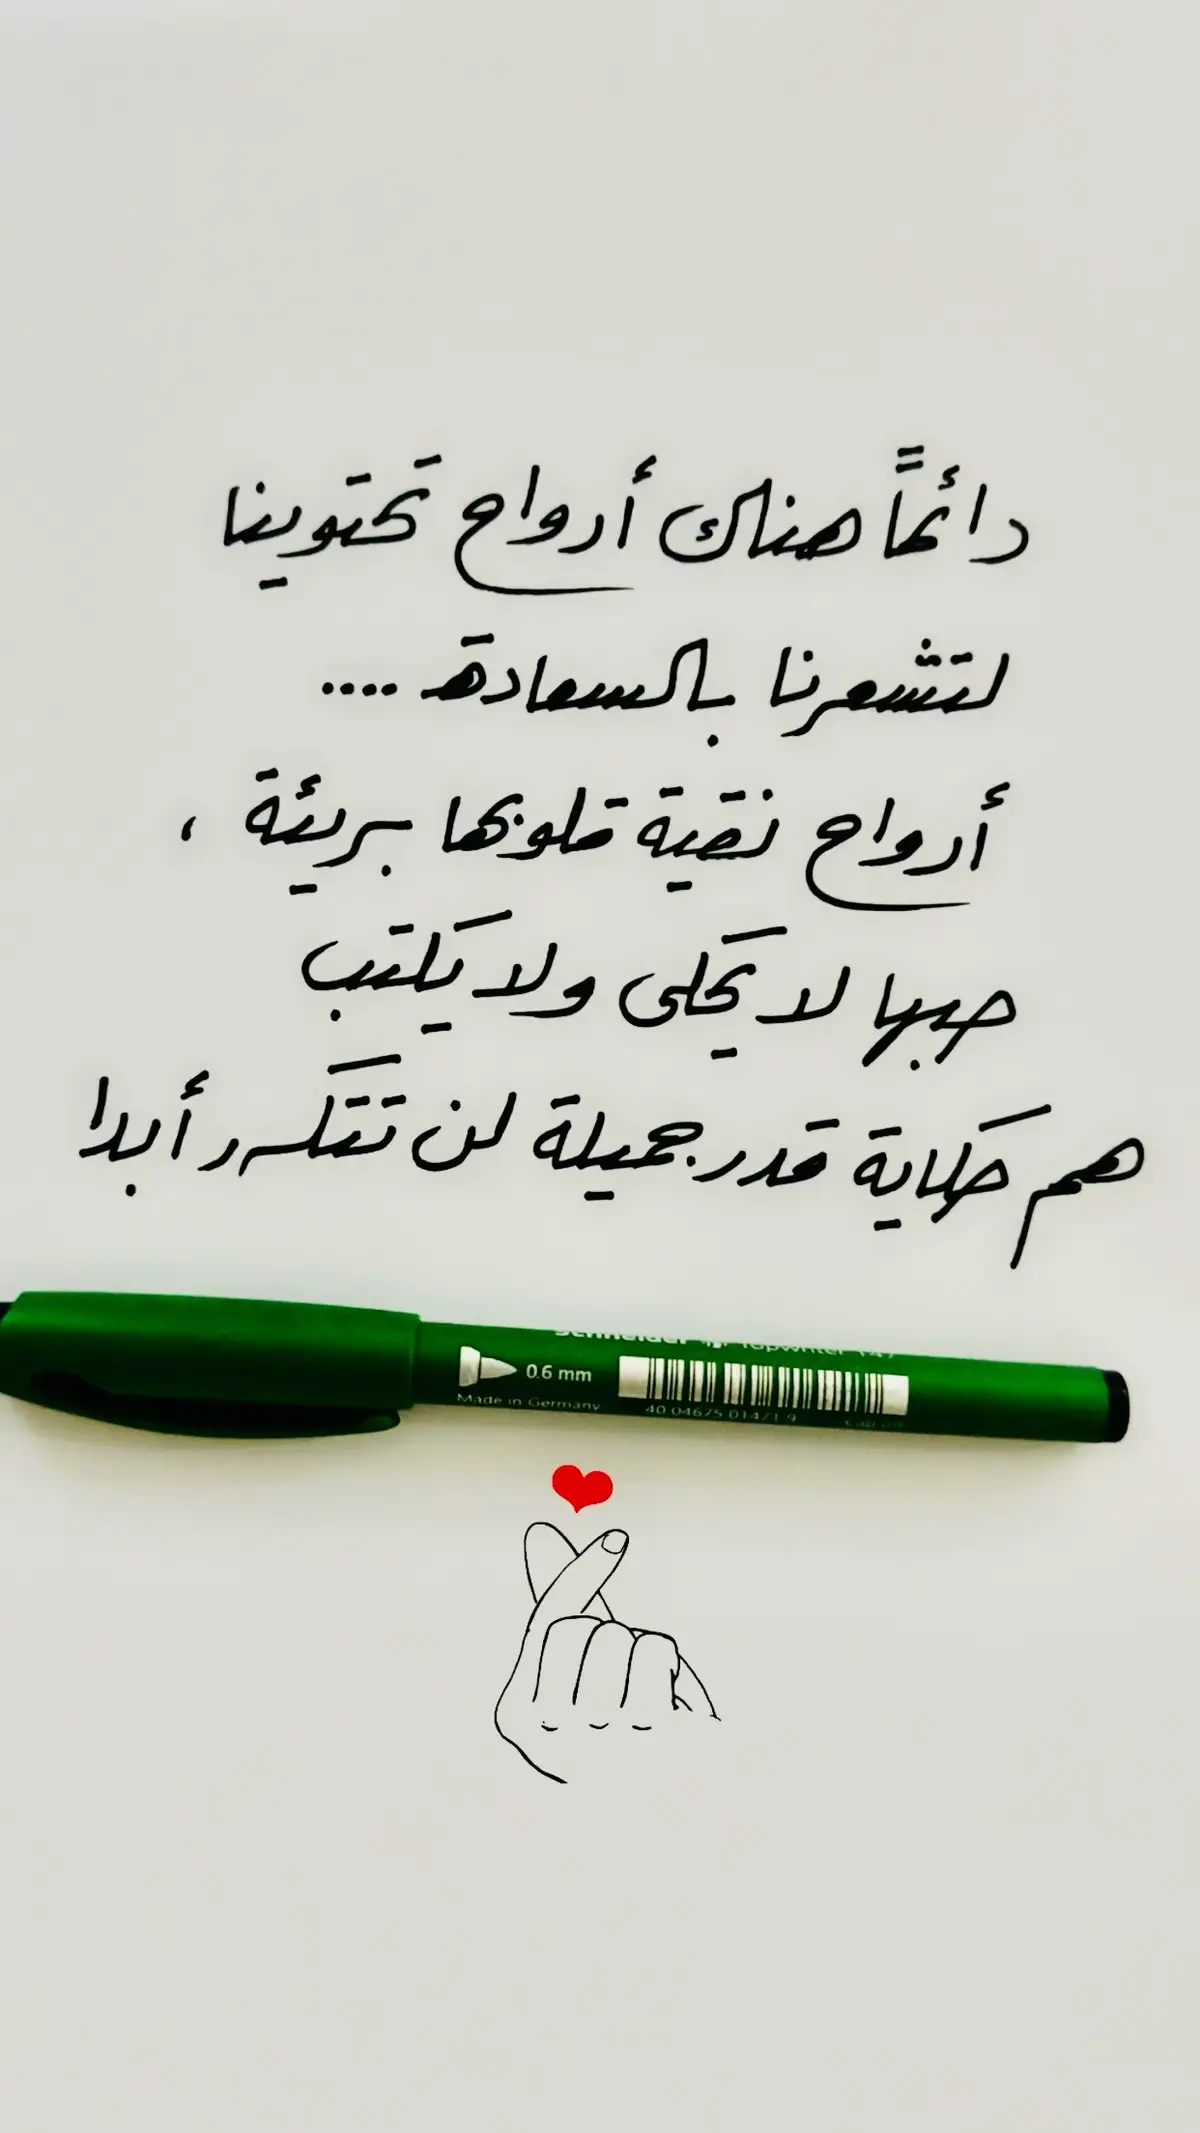 دائماً هناك أرواح تحتوينا
لتشعرنا بالسعادة ....
أرواح نقية قلوبها بريئة ،
حبها لا يحكى ولا يكتب
هم حكاية قدر جميلة لن تتكرر أبدا
Schneider Topwriter 147
0.6 mm
Made in Germany
40 04675 01471 9
Cap off